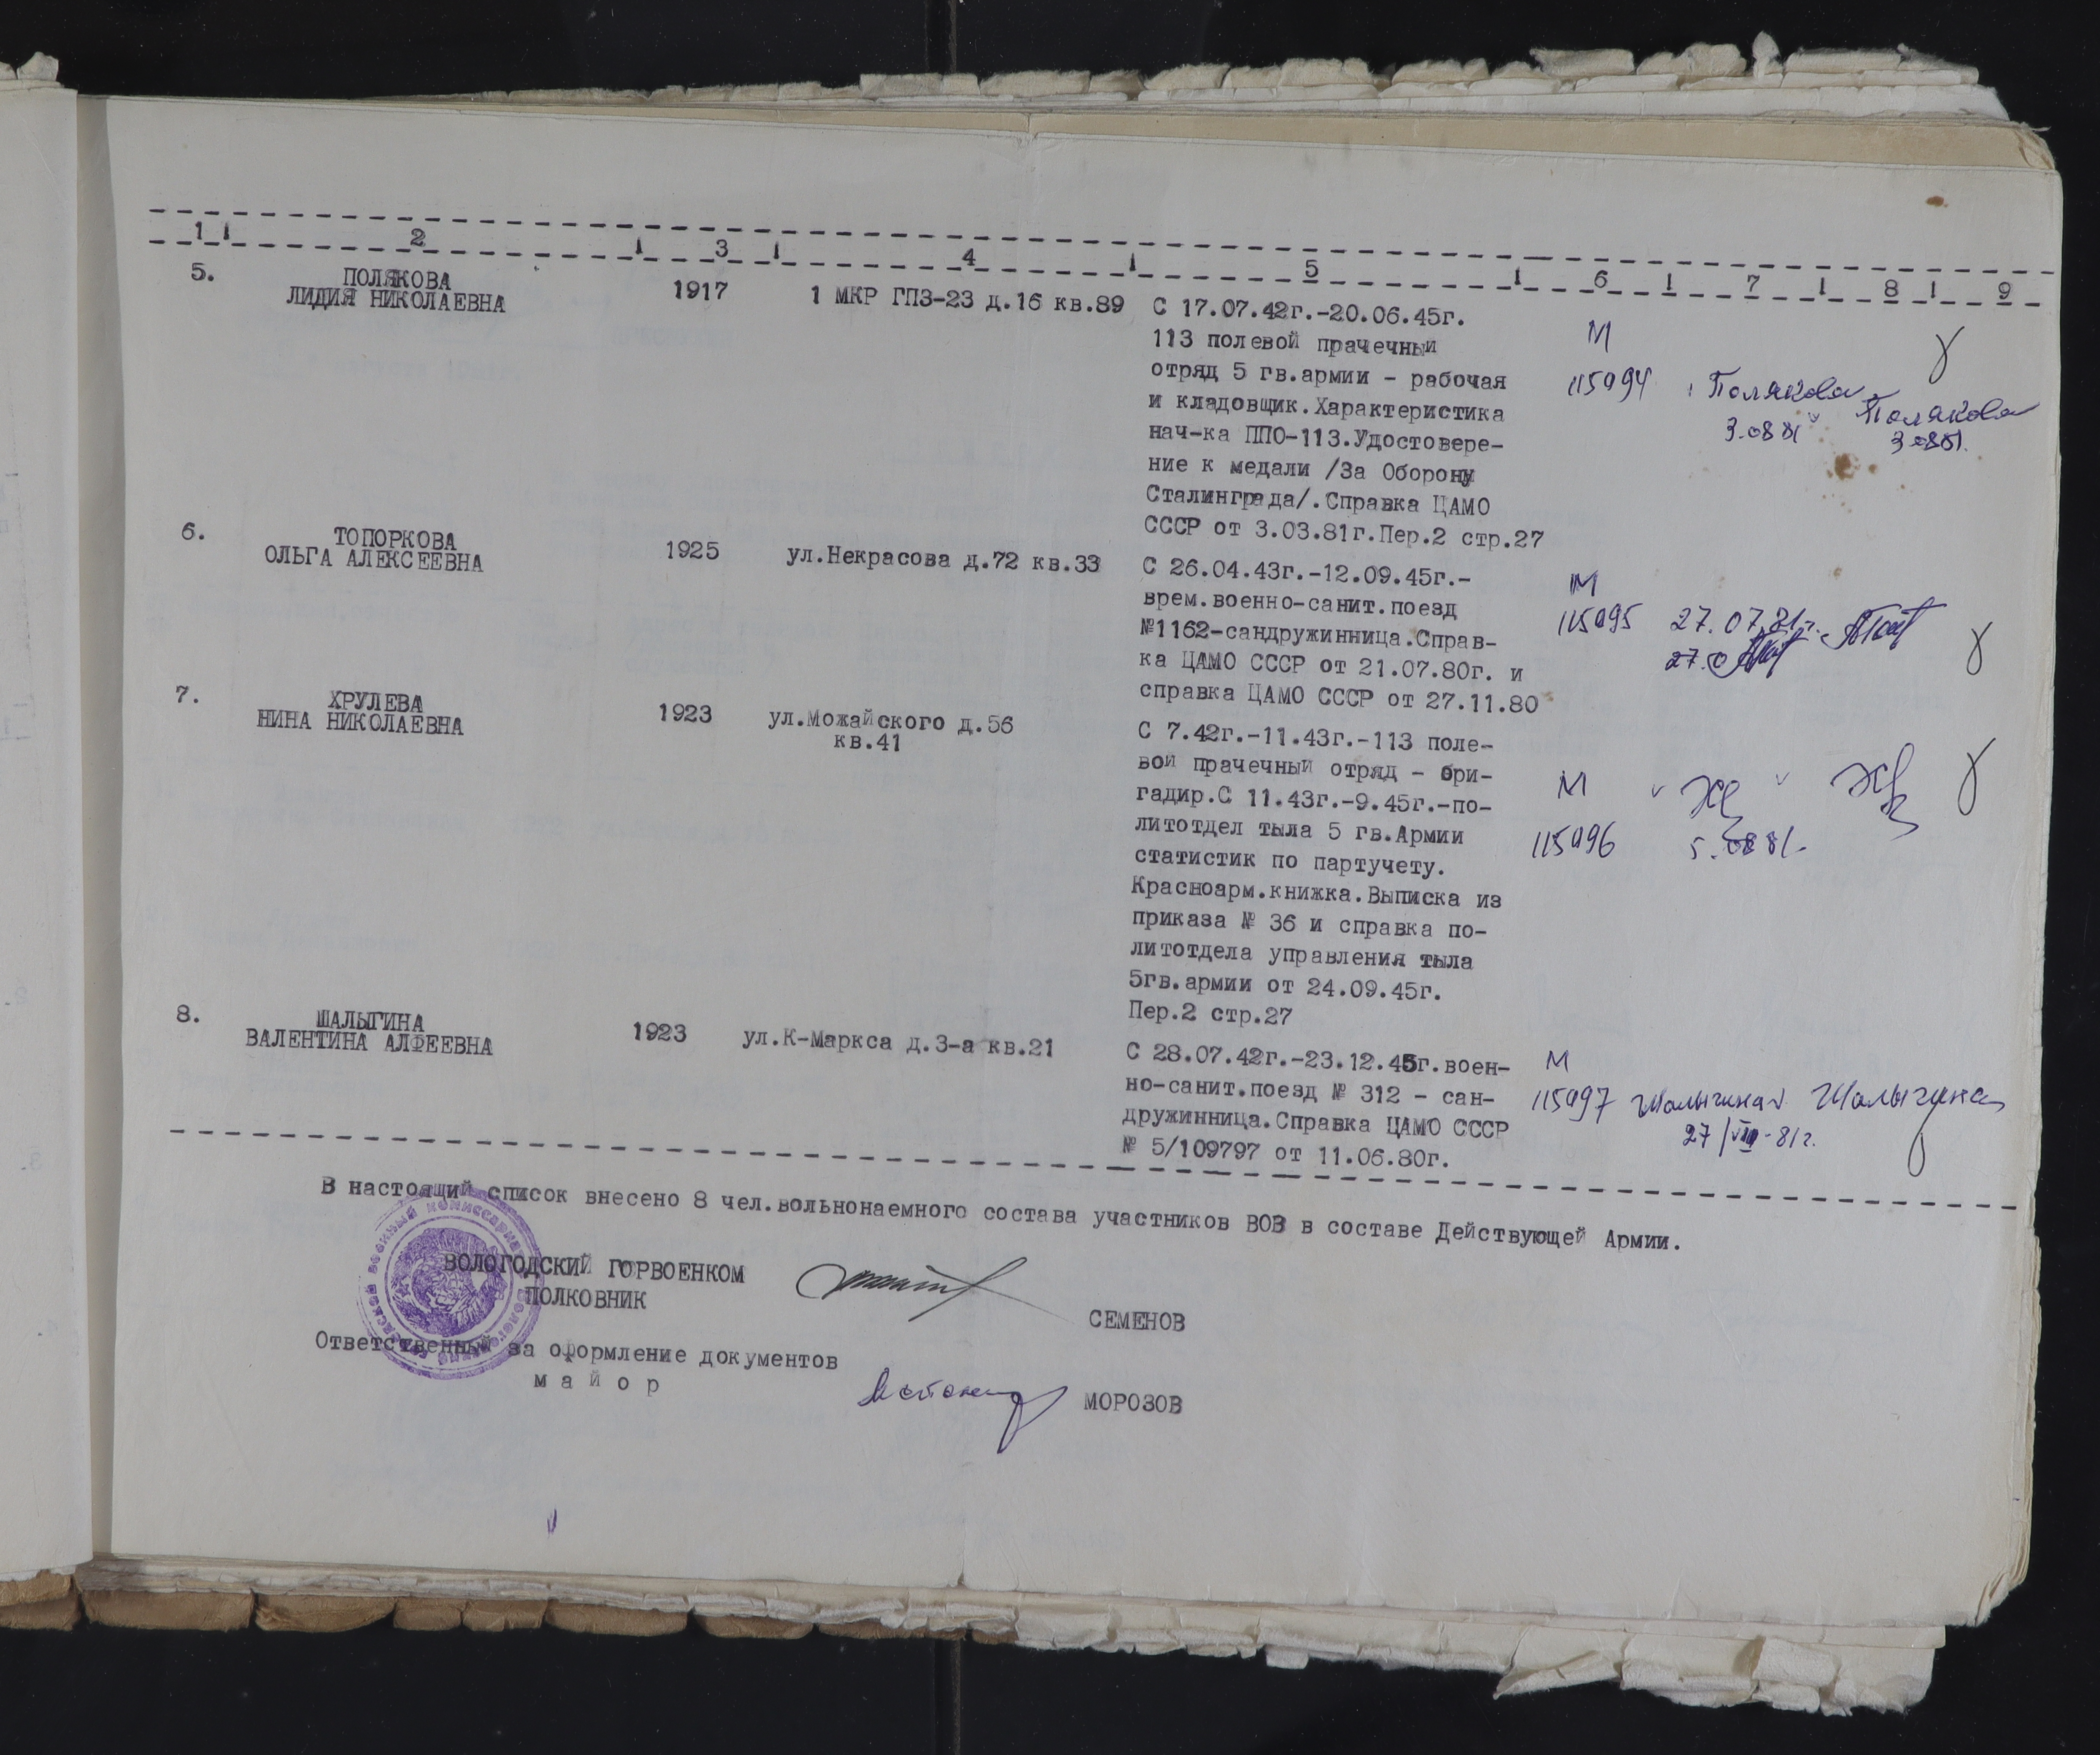 1 2 3 4 5 6 7 8 9
5. ПОЛЯКОВА
ЛИДИЯ НИКОЛАЕВНА
1917
1 МКР ГПЗ-23 д.16 кв.89
С 17.07.42г.-20.06.45г.
113 полевой прачечный
отряд 5 гв.армии - рабочая
и кладовщик.Характеристика
нач-ка ППО-113.Удостовере-
ние к медали /За Оборону
Сталинграда/.Справка ЦАМО
СССР от 3.03.81г.Пер.2 стр.27
М
115994
Полякова
3.08 81
Полякова
3.08 81.
6. ТОПОРКОВА
ОЛЬГА АЛЕКСЕЕВНА
1925
ул.Некрасова д.72 кв.33
С 26.04.43г.-12.09.45г.-
врем.военно-санит.поезд
№1162-сандружинница.Справ-
ка ЦАМО СССР от 21.07.80г. и
справка ЦАМО СССР от 27.11.80
М
115995
27.07.81г.
27.0
7. ХРУЛЕВА
НИНА НИКОЛАЕВНА
1923
ул.Можайского д.56
кв.41
С 7.42г.-11.43г.-113 поле-
вой прачечный отряд - бри-
гадир.С 11.43г.-9.45г.-по-
литотдел тыла 5 гв.Армии
статистик по партучету.
Красноарм.книжка.Выписка из
приказа № 36 и справка по-
литотдела управления тыла
5гв.армии от 24.09.45г.
Пер.2 стр.27
М
115996
5.08 81.
8. ШАЛЫГИНА
ВАЛЕНТИНА АЛФЕЕВНА
1923
ул.К-Маркса д.3-а кв.21
С 28.07.42г.-23.12.45г.воен-
но-санит.поезд № 312 - сан-
дружинница.Справка ЦАМО СССР
№ 5/109797 от 11.06.80г.
М
115997
Шалыгина
27/VIII-81г.
Шалыгина
В настоящий список внесено 8 чел.вольнонаемного состава участников ВОВ в составе Действующей Армии.
ВОЛОГОДСКИЙ ГОРВОЕНКОМ
ПОЛКОВНИК
СЕМЕНОВ
Ответственный за оформление документов
м а й о р
МОРОЗОВ